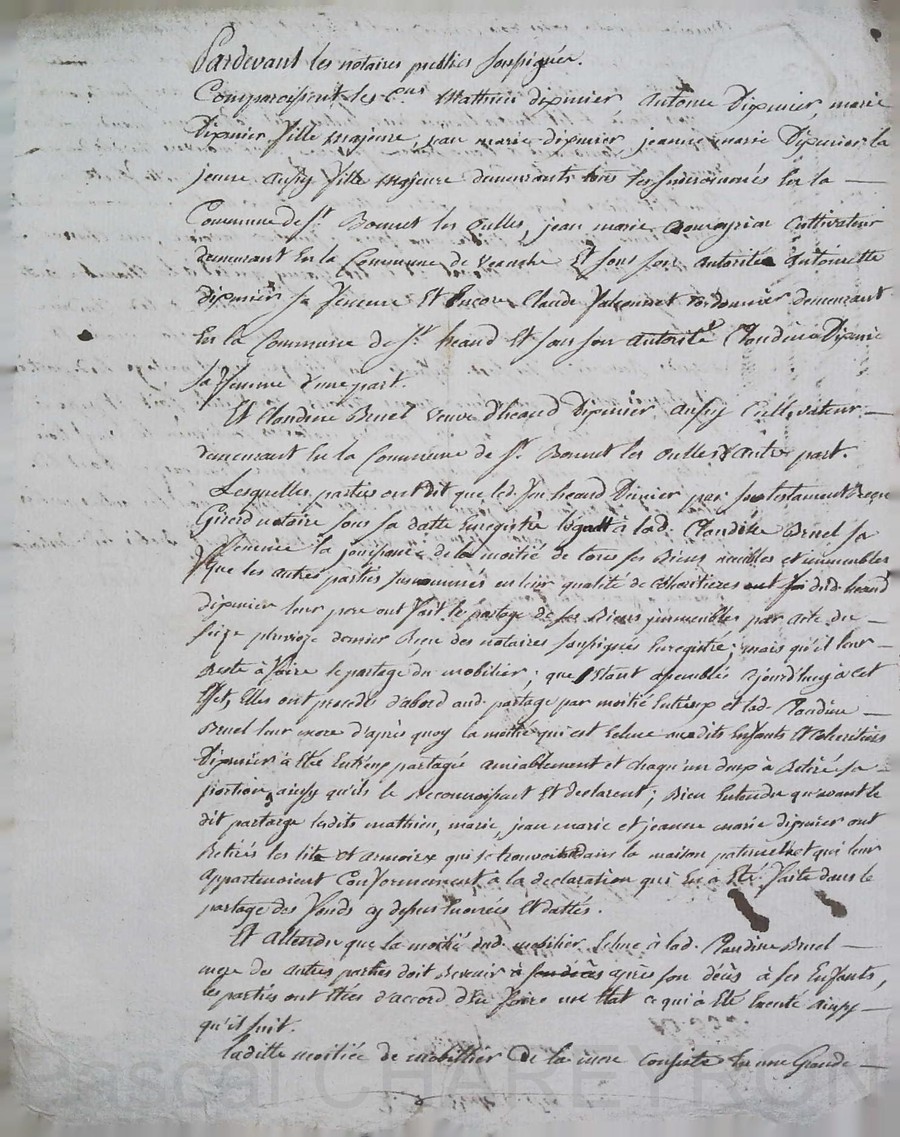 Pardevant les notaires publics soussignés.
Comparoissent les C.ens Mathieu dipinier, Antoine Dipinier, marie
Dipinier fille majeure, jean marie dipinier, jeanne marie Dipinier la
jeune aussy fille majeure demeurants tous les susnommés en la
Commune de St. Bonnet les oulles, jean marie cultivateur
demeurant en la Commune de veauche Et sous son autorité Antoinette
dipinier sa femme Et Encore Claude cordonnier demeurant
En la Commune de St. heand Et sous son autorité Claudine Dipinier
sa femme d'une part.
Et Claudine Brunel veuve d'heand Dipinier aussy Cultivateur
demeurant En la Commune de St. Bonnet les oulles d'autre part.
Lesquelles parties ont dit que led. feu heand Dipinier par son testament Reçu
Girerd notaire sous sa datte Enregistré légat à lad. Claudine Brunel sa
femme la jouissance de la moitié de tous ses Biens meubles et immeubles
que les autres parties susnommés en leur qualité de Coheritieres dud. heand
dipinier leur pere ont fait le partage de ses Biens immeubles par acte du
seize pluviose dernier Reçu des notaires soussignés Enregistré; mais qu'il leur
Reste à faire le partage du mobilier; que s'Etant assemblés aujourd'huy à cet
Effet, Elles ont procedé d'abord aud. partage par moitié Entr'eux et lad. Claudine
Brunel leur mere d'après quoy la moitié qui est Echue auxdits Enfants Et Coheritiers
Dipinier à Eté Entr'eux partagée amiablement et chaqu'un d'eux à Retiré sa
portion ainsy qu'ils le Reconnoissent Et declarent; Bien Entendu qu'avant le
dit partage lesdits mathieu, marie, jean marie et jeanne marie dipinier ont
Retirés les lits et armoires qui se trouvoient dans la maison paternelle et qui leur
Appartenoient Conformement à la declaration qui En a Eté faite dans le
partage des fonds cy dessus Enoncés Et dattés.
Et Attendu que la moitié dud. mobilier Echue à lad. Claudine Brunel
mere des autres parties doit Revenir après son décès à ses Enfants,
les parties ont Etées d'accord d'En faire un Etat ce qui à Eté Executé ainsy
qu'il suit.
Laditte moitiée de mobillier de la mere Consiste En une Grande
Pascal CHAREYRON